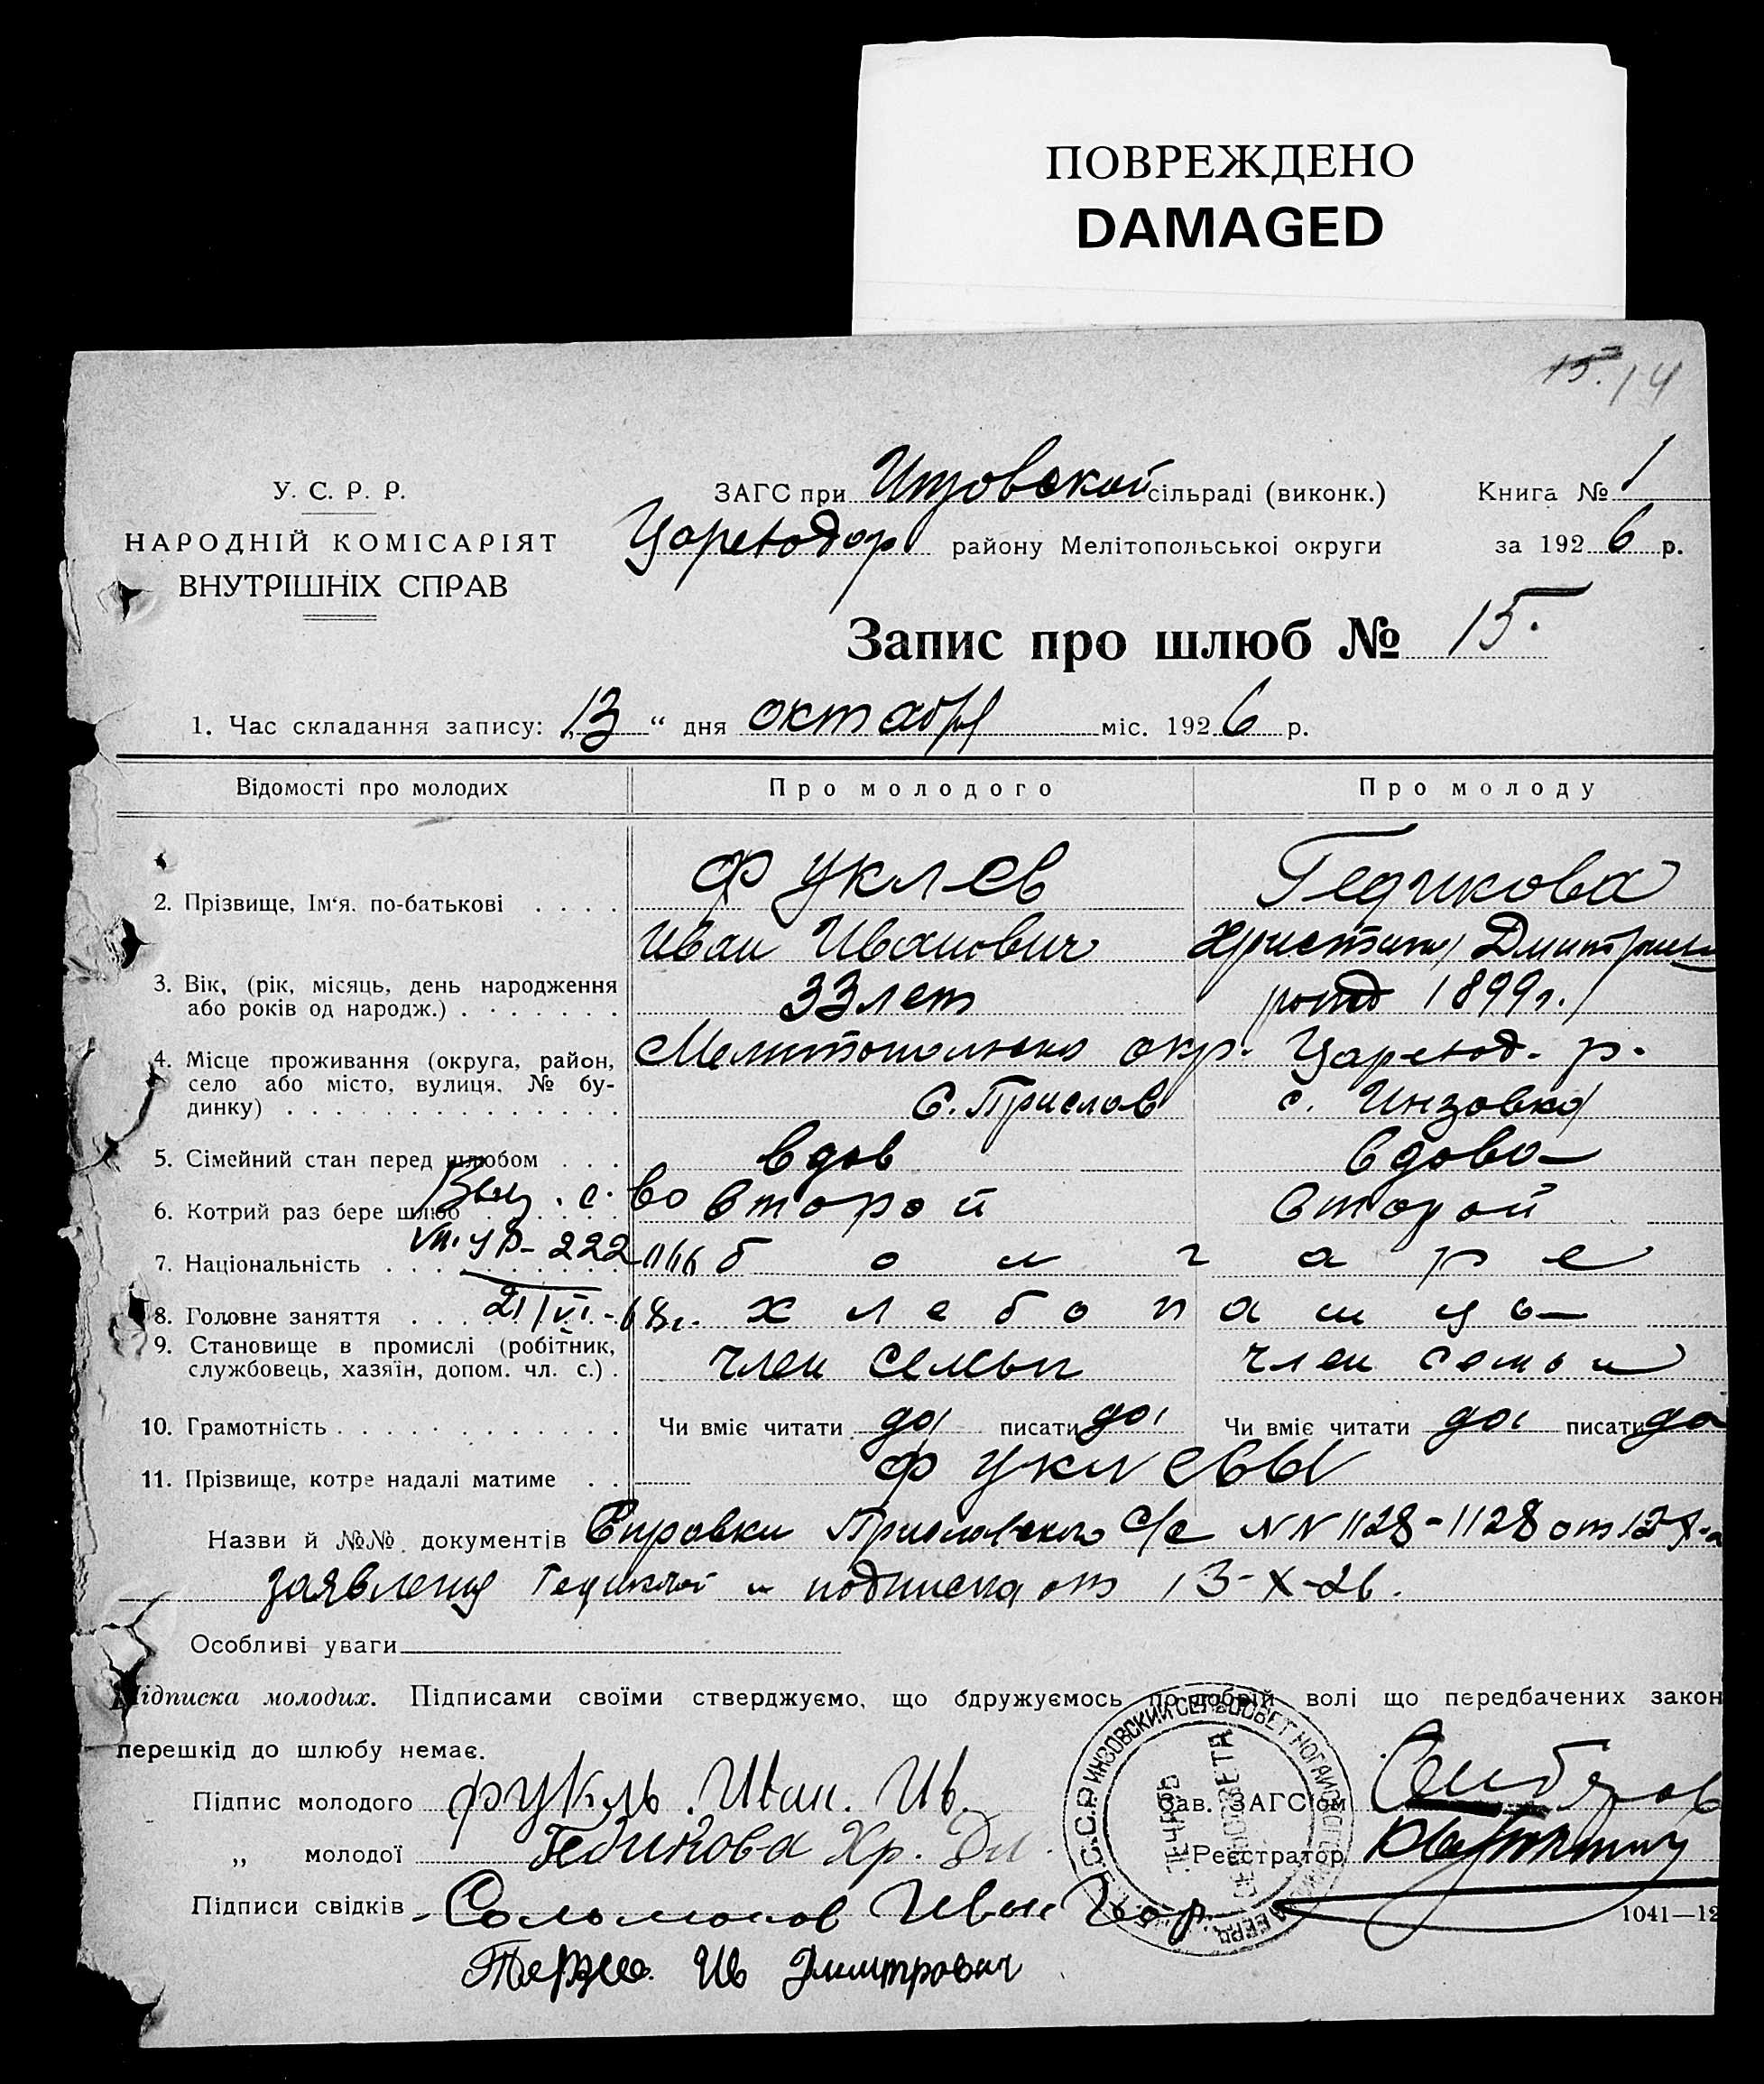 ПОВРЕЖДЕНО
DAMAGED
15. 14
У. С. Р. Р.
НАРОДНІЙ КОМІСАРІЯТ
ВНУТРІШНІХ СПРАВ
ЗАГС при Инзовской сільраді (виконк.) Книга № 1
Цареводар району Мелітопольської округи за 1926 р.
Запис про шлюб № 15.
1. Час складання запису: „13“ дня октября міс. 1926 р.
Відомості про молодих Про молодого Про молоду
2. Прізвище, Ім‘я, по-батькові . . . . Фуклев Гедикова
Иван Иванович Христина Дмитриев
3. Вік, (рік, місяць, день народження
або років од народж.) . . . . . . . 33 лет рожд 1899 г.
4. Місце проживання (округа, район, Мелитопольско окр. Царевод. р.
село або місто, вулиця, № бу-
динку) . . . . . . . . . . . . . . с. Прислав с. Инзовка
5. Сімейний стан перед шлюбом . . . вдов вдова
Выд. с. во
6. Котрий раз бере шлюб второй второй
222
7. Національність . . . . . . . . . болгаре
21/VI-68г.
8. Головне заняття . . . хлебопашцы
9. Становище в промислі (робітник,
службовець, хазяїн, допом. чл. с.) . член семьи член семьи
10. Грамотність . . . . . . . . . . . . Чи вміє читати да писати да Чи вміє читати да писати да
11. Прізвище, котре надалі матиме . . Фуклевы
Назви й №№ документів Справки Приславского с/с NN 1128-1128 от 12-X-
заявления и подписка от 13-X-26.
Особливі уваги
Підписка молодих. Підписами своїми стверджуємо, що одружуємось по добрій волі що передбачених закон
перешкід до шлюбу немає.
Підпис молодого Фукль. Иван. Ив.
Зав. ЗАГС‘ом
„ молодої Гедикова Хр. Дм.
Реєстратор
Підписи свідків Соломонов Иван
1041—12
Терзи Ив Дмитрович
У.С.С.Р. ИНЗОВСКИЙ СЕЛЬСОВЕТ НОГАЙСКОГО
ПЕЧАТЬ СЕЛЬСОВЕТА